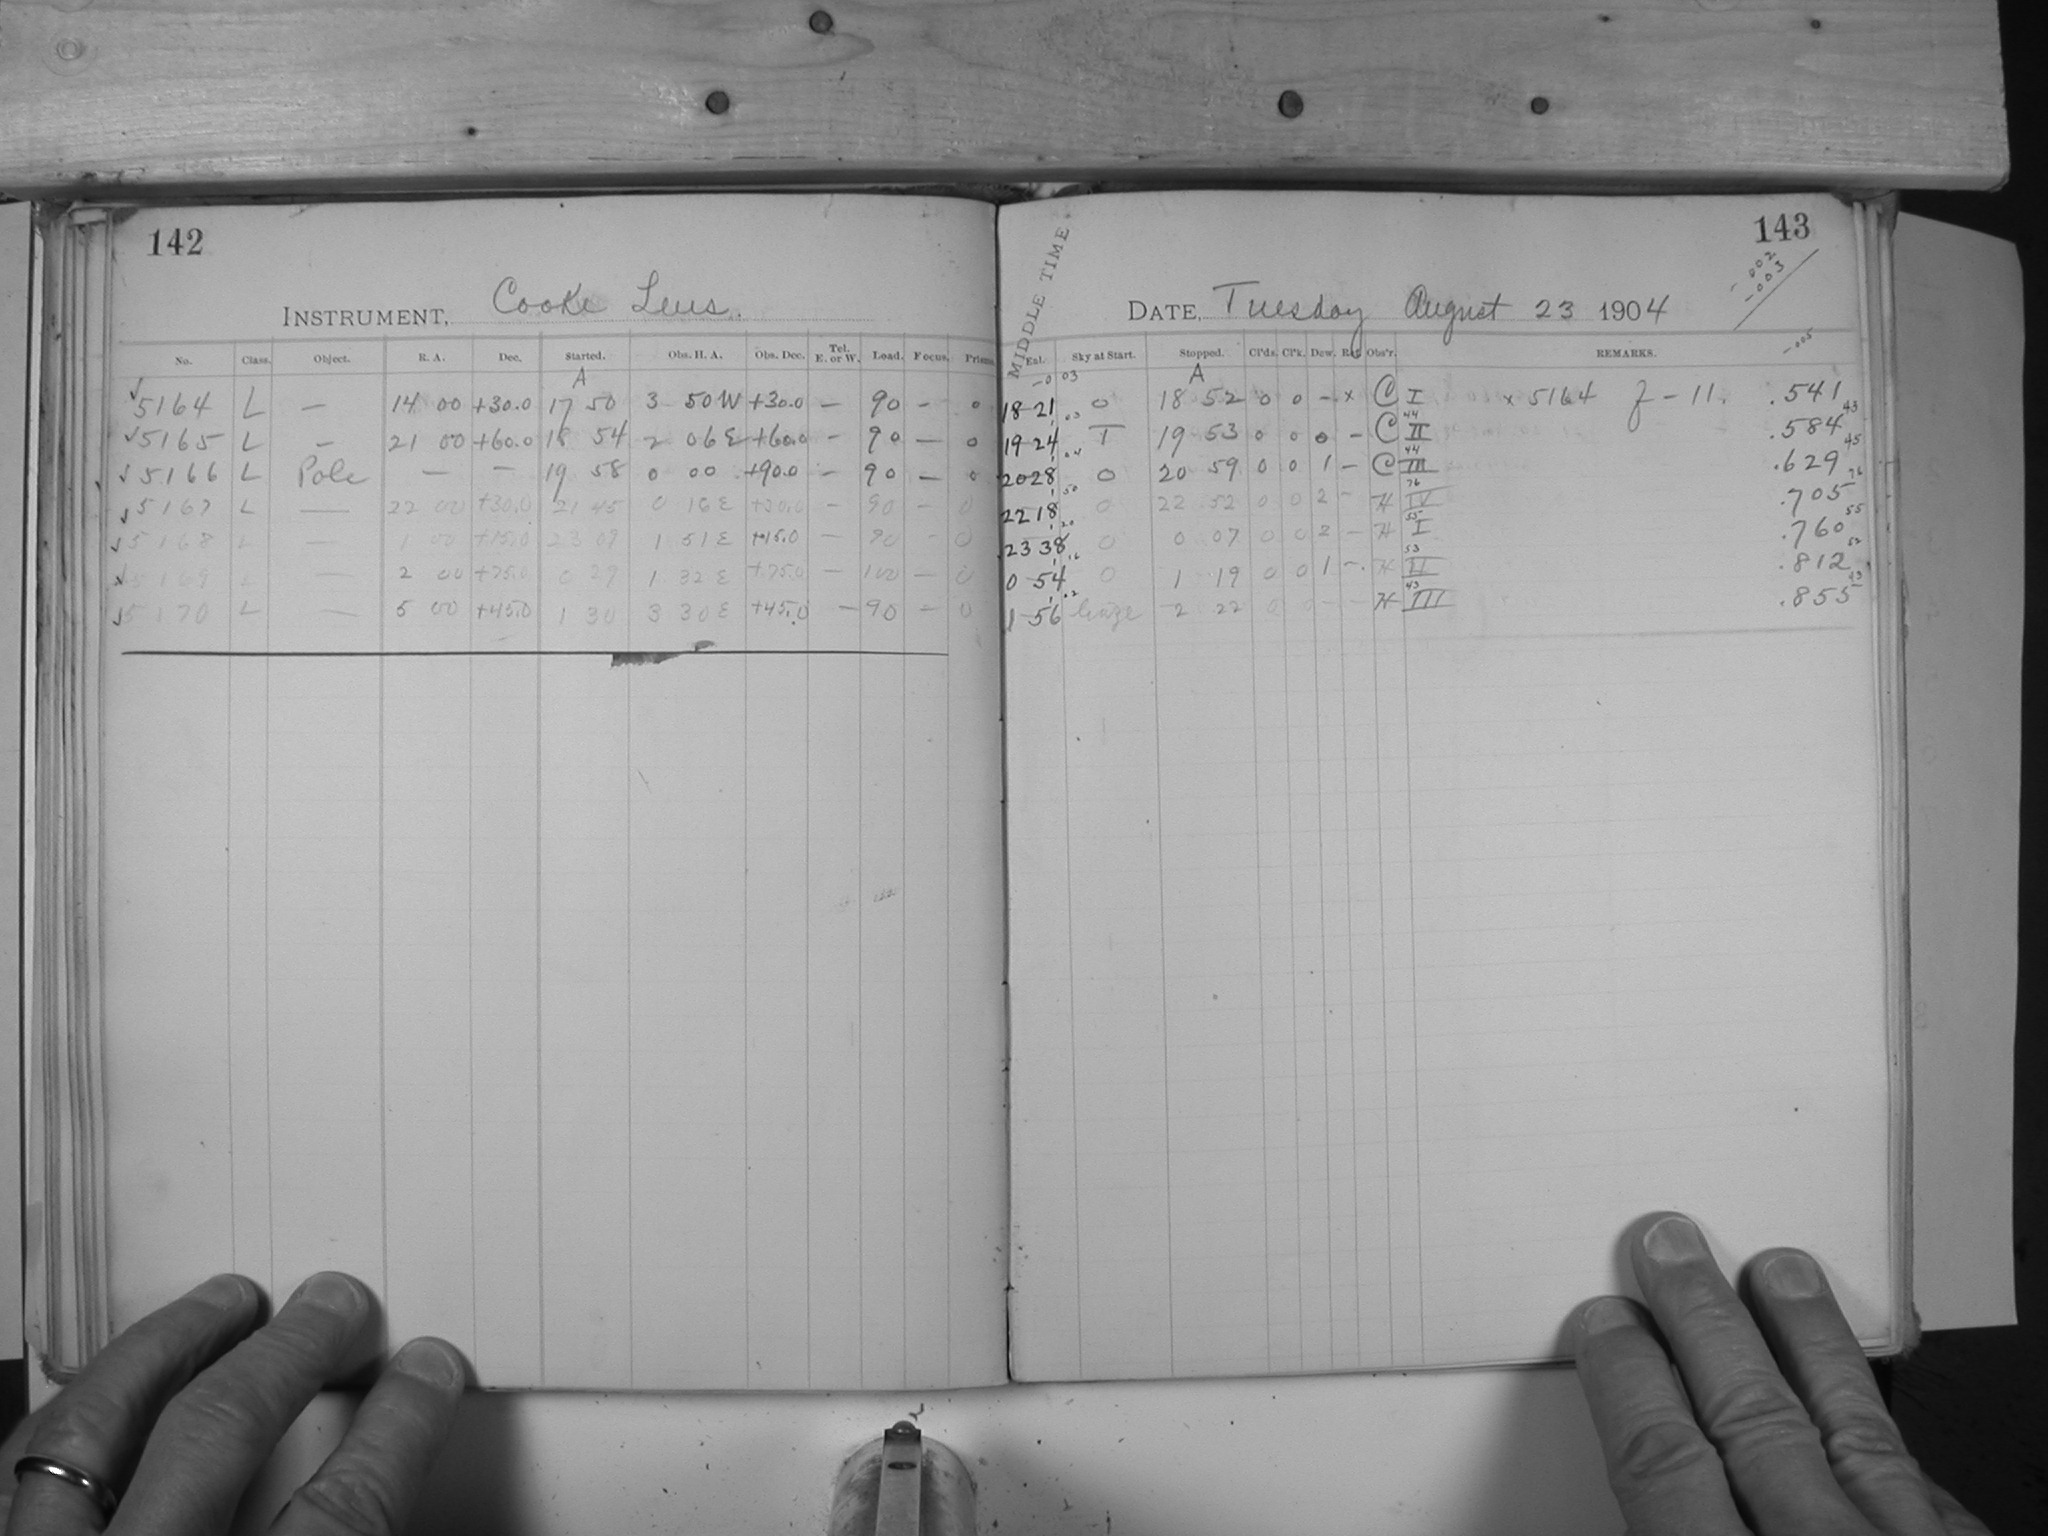 142
INSTRUMENT, Cooke Lens.
No. Class. Object. R. A. Dec. Started. Obs. H. A. Obs. Dec. Tel. E. or W. Load. Focus. Prisms.
A
✓5164 L — 14 00 +30.0 17 50 3 50 W +30.0 — 90 – 0
✓5165 L — 21 00 +60.0 18 54 2 06 E +60.0 — 90 — 0
✓5166 L Pole — — 19 58 0 00 +90.0 — 90 — 0
✓5167 L — 22 00 +30.0 21 45 0 16 E +30.0 — 90 – 0
✓5168 L — 1 00 +15.0 23 09 1 51 E +15.0 — 90 – 0
✓5169 L — 2 00 +75.0 0 29 1 32 E +75.0 — 100 — 0
✓5170 L — 5 00 +45.0 1 30 3 30 E +45.0 — 90 – 0
143
-002
-003
MIDDLE TIME
DATE, Tuesday August 23 1904
-005
Enl. Sky at Start. Stopped. Cl'ds. Cl'k. Dew. Ref. Obs'r. REMARKS.
-0 03 A
18 21 0 18 52 0 0 – x C I x 5164 f – 11. .541
19 24 T 19 53 0 0 0 – C II .584 43
20 28 0 20 59 0 0 1 – C III .629 45
22 18 0 22 52 0 0 2 – H IV .705 76
23 38 0 0 07 0 0 2 – H I .760 55
0 54 0 1 19 0 0 1 – H II .812 52
1 56 haze 2 22 0 0 – – H III .855 43